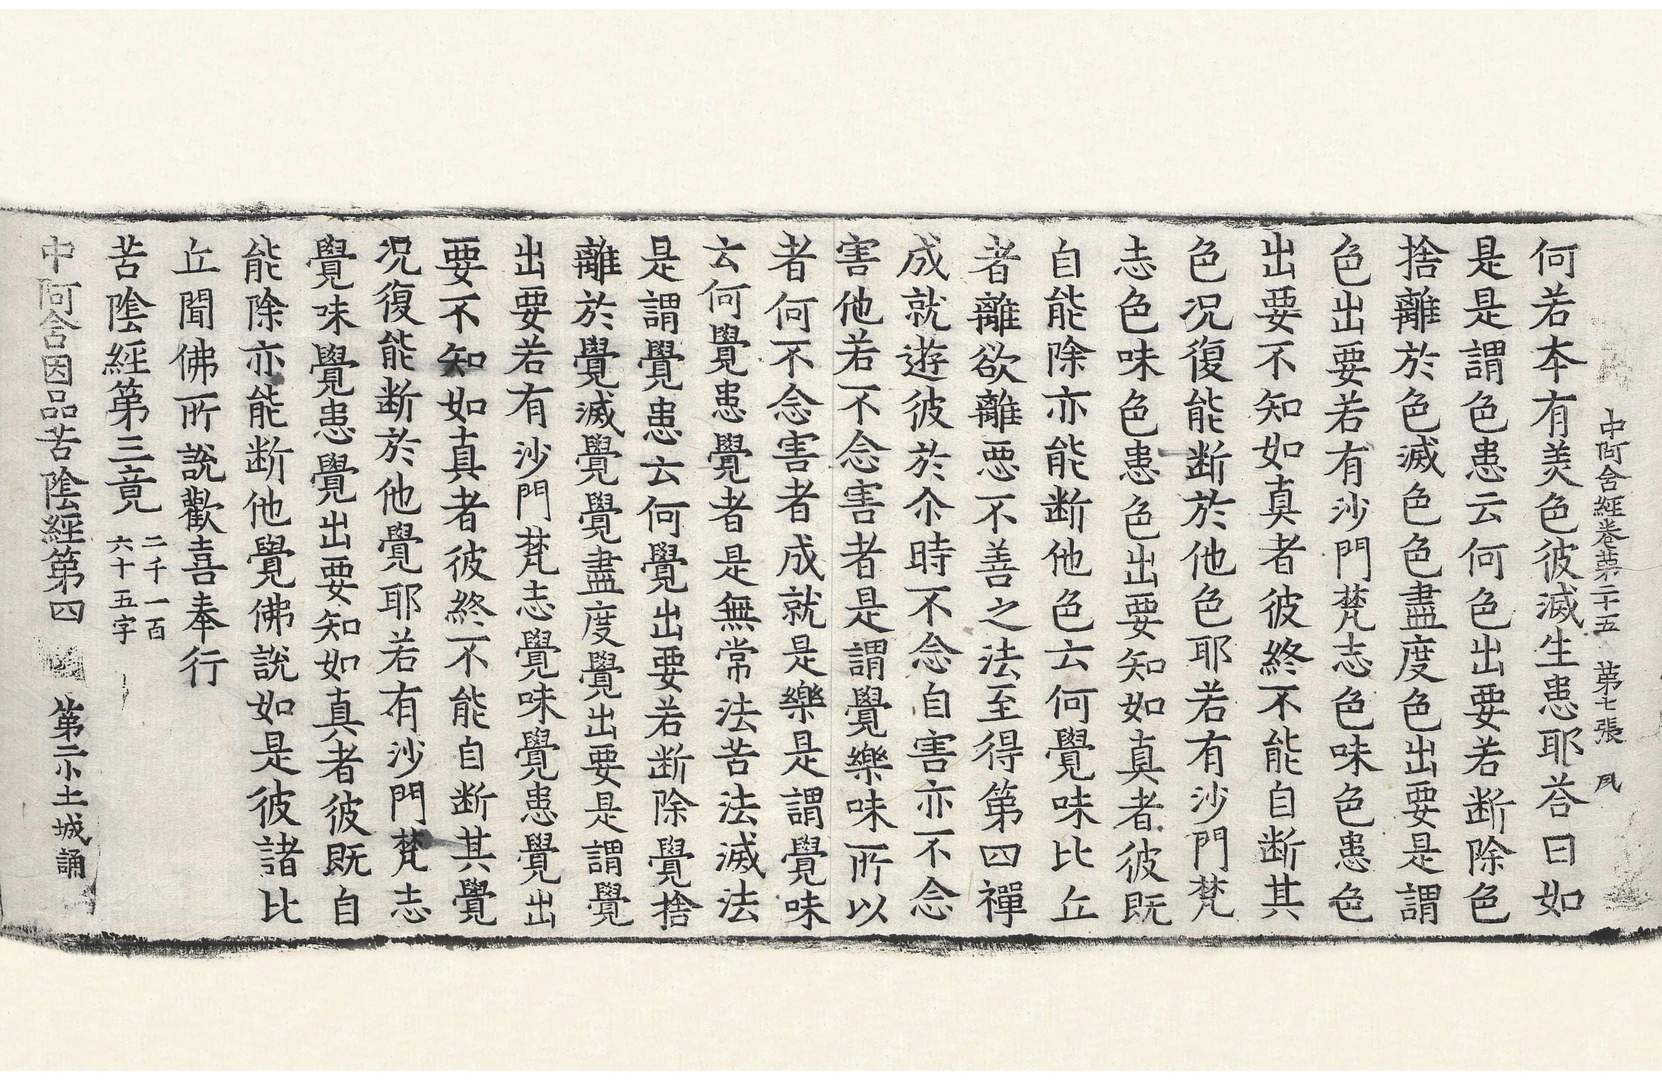 中阿含經卷第二十五　第七張　夙
何若本有美色彼滅生患耶荅曰如
是是謂色患云何色出要若断除色
捨離於色滅色色盡度色出要是謂
色出要若有沙門梵志色味色患色
出要不知如真者彼終不能自断其
色况復能断於他色耶若有沙門梵
志色味色患色出要知如真者彼既
自能除亦能断他色云何覺味比丘
者離欲離惡不善之法至得第四禪
成就遊彼於尒時不念自害亦不念
害他若不念害者是謂覺樂味所以
者何不念害者成就是樂是謂覺味
云何覺患覺者是無常法苦法滅法
是謂覺患云何覺出要若断除覺捨
離於覺滅覺覺盡度覺出要是謂覺
出要若有沙門梵志覺味覺患覺出
要不知如真者彼終不能自断其覺
况復能断於他覺耶若有沙門梵志
覺味覺患覺出要知如真者彼既自
能除亦能断他覺佛說如是彼諸比
丘聞佛所說歡喜奉行
苦陰經第三竟　二千一百
六十五字
中阿含因品苦陰經第四　第二小土城誦